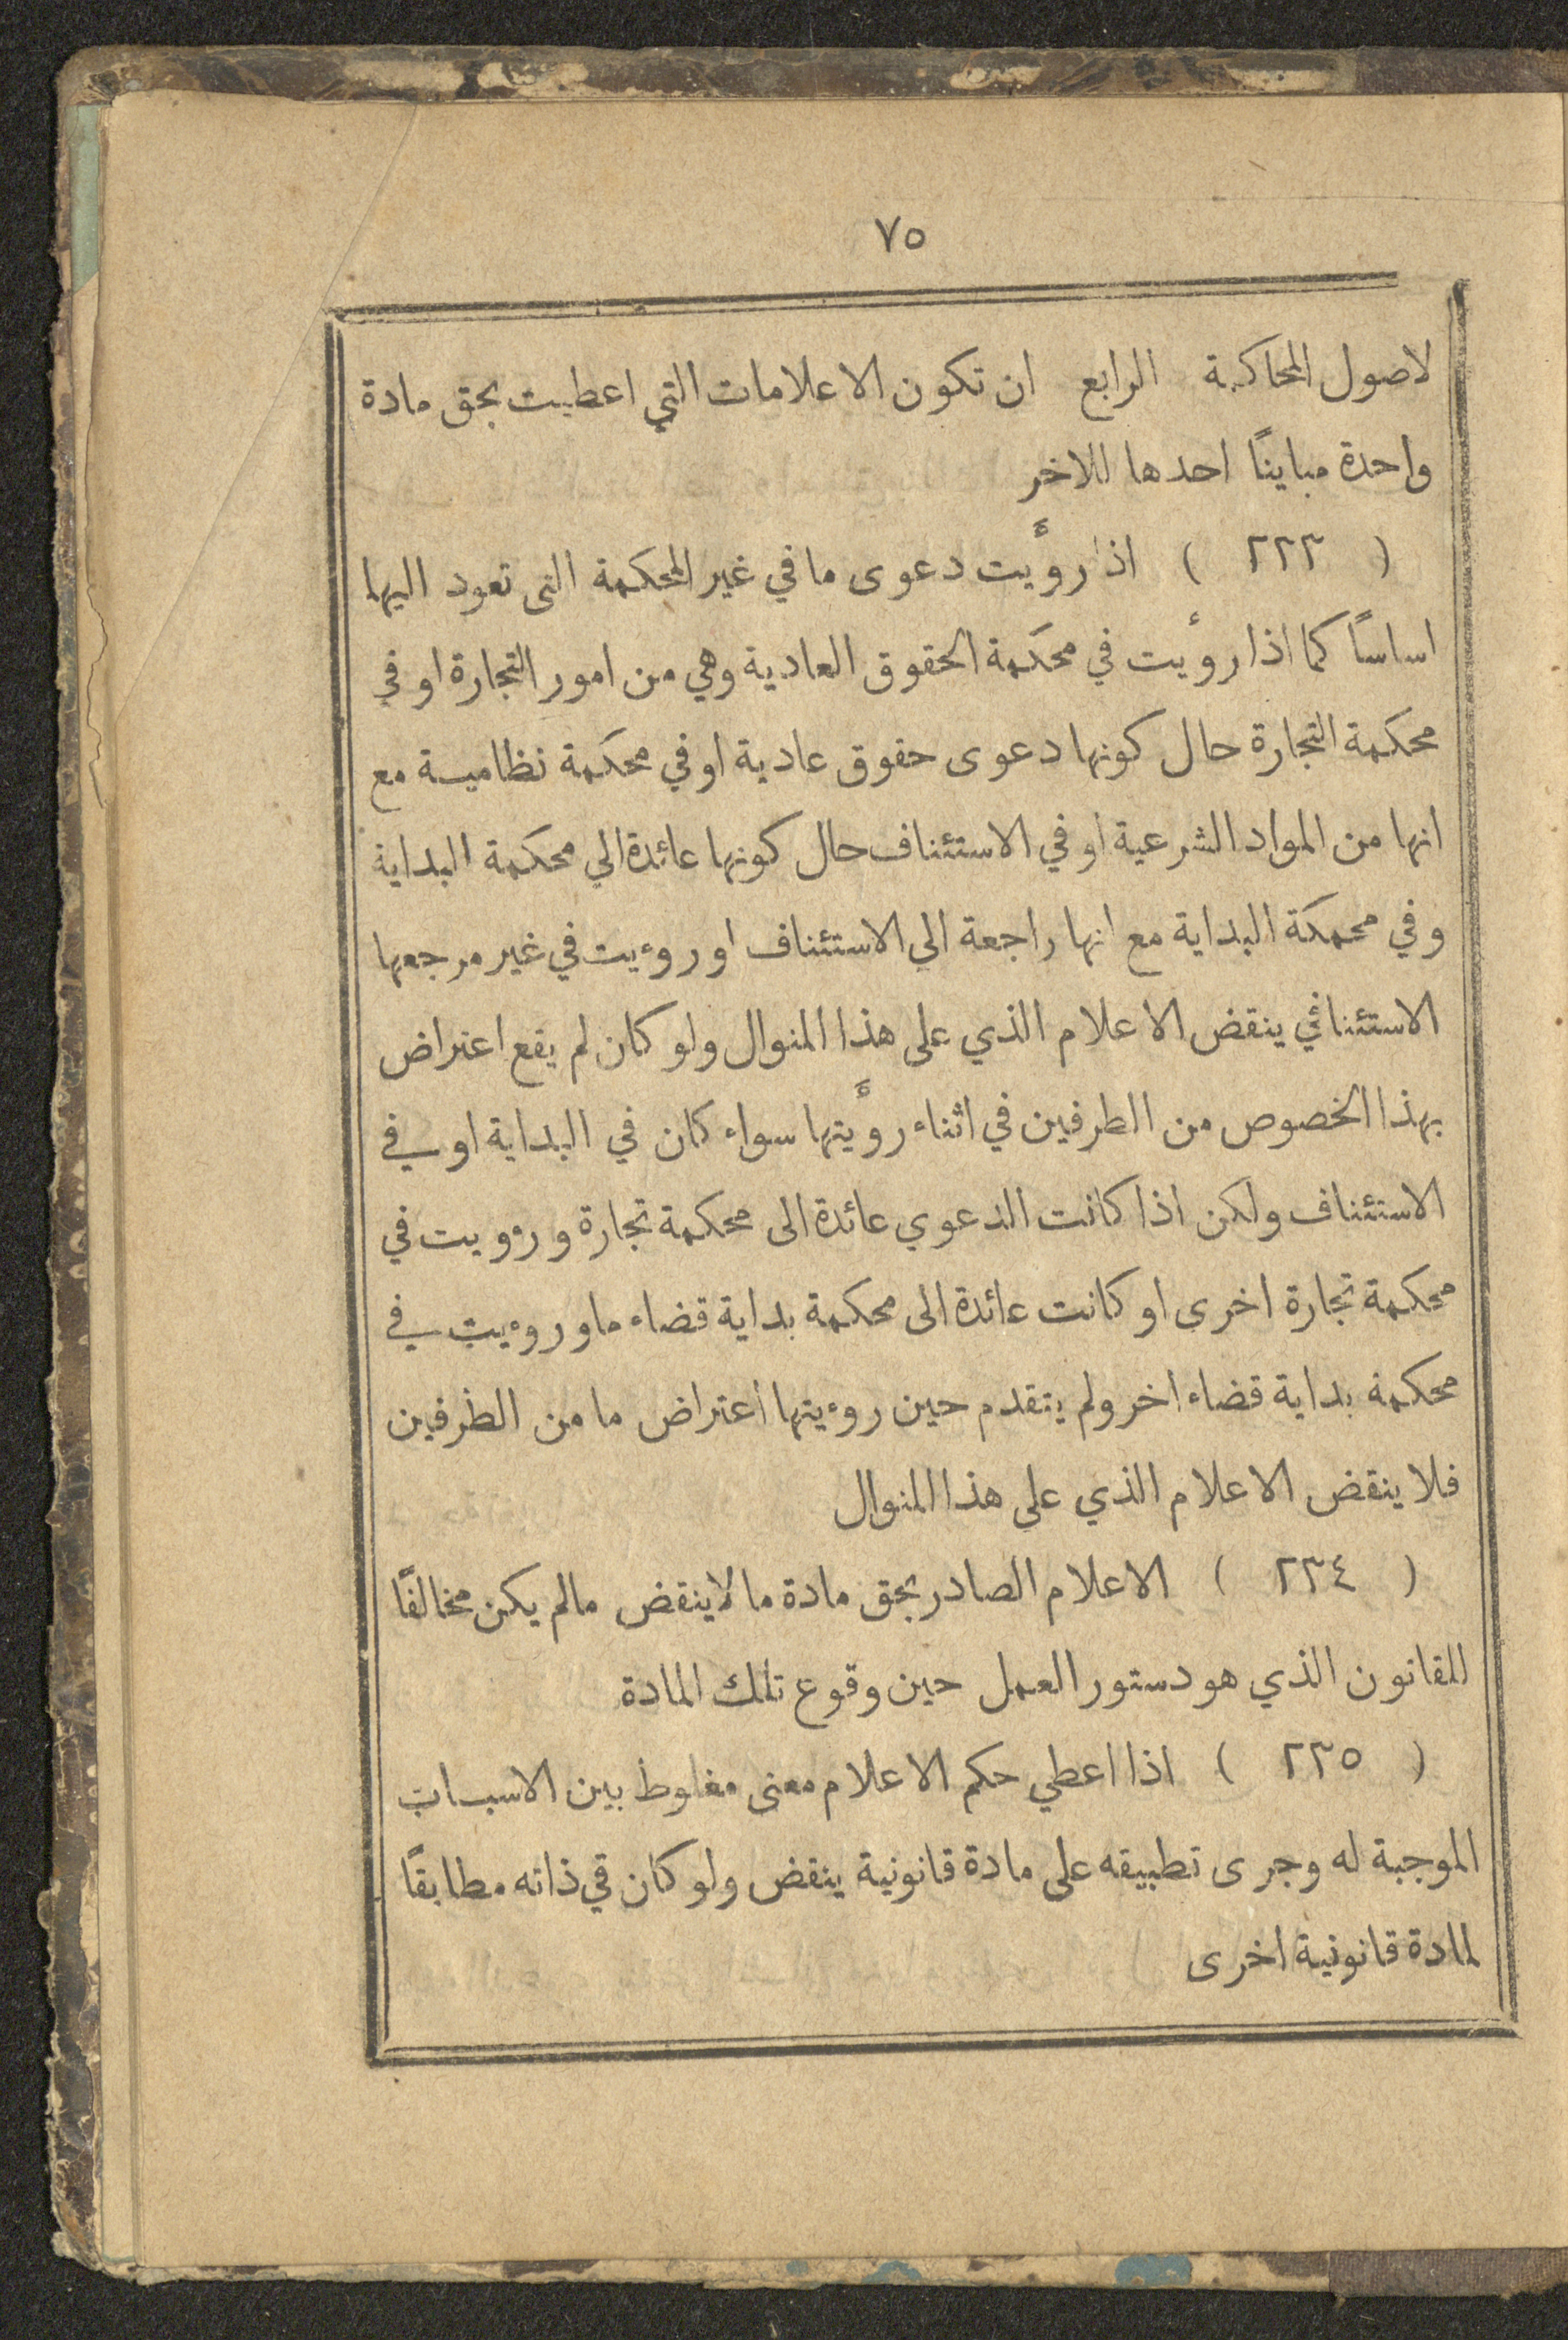 ٧٥
لاصول المحاكمة الرابع ان تكون الاعلامات التي اعطيت بحق مادة
واحدة مبايناً احدها للاخر
( ٢٢٣ ) اذا رؤيت دعوى ما في غير المحكمة التى تعود اليها
اساساً كما اذا رؤيت في محكمة الحقوق العادية وهي من امور التجارة او في
محكمة التجارة حال كونها دعوى حقوق عادية او في محكمة نظامية مع
انها من المواد الشرعية او في الاستئناف حال كونها عائدة الي محكمة البداية
وفي محمكة البداية مع انها راجعة الي الاستئناف او روءيت في غير مرجعها
الاستئنافي ينقض الاعلام الذي على هذا المنوال ولو كان لم يقع اعتراض
بهذا الخصوص من الطرفين في اثناء رؤيتها سواء كان في البداية او في
الاستئناف ولكن اذا كانت الدعوي عائدة الى محكمة تجارة ورؤيت في
محكمة تجارة اخرى او كانت عائدة الى محكمة بداية قضاء ما وروءيت في
محكمة بداية قضاء اخر ولم يتقدم حين روءيتها اعتراض ما من الطرفين
فلا ينقض الاعلام الذي على هذا المنوال
( ٢٣٤ ) الاعلام الصادر بحق مادة ما لاينقض مالم يكن مخالفًا
للقانون الذي هو دستور العمل حين وقوع تلك المادة
( ٢٣٥ ) اذا اعطي حكم الاعلام معنى مغلوط بين الاسباب
الموجبة له وجرى تطبيقه على مادة قانونية ينقض ولو كان في ذاته مطابقًا
لمادة قانونية اخرى